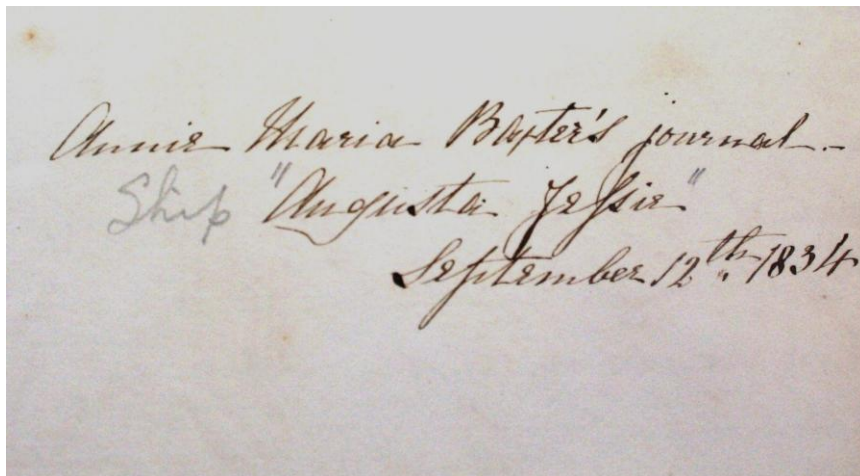 Annie Maria Baxter's journal.-
Ship "Augusta Jessie"
September 12th 1834